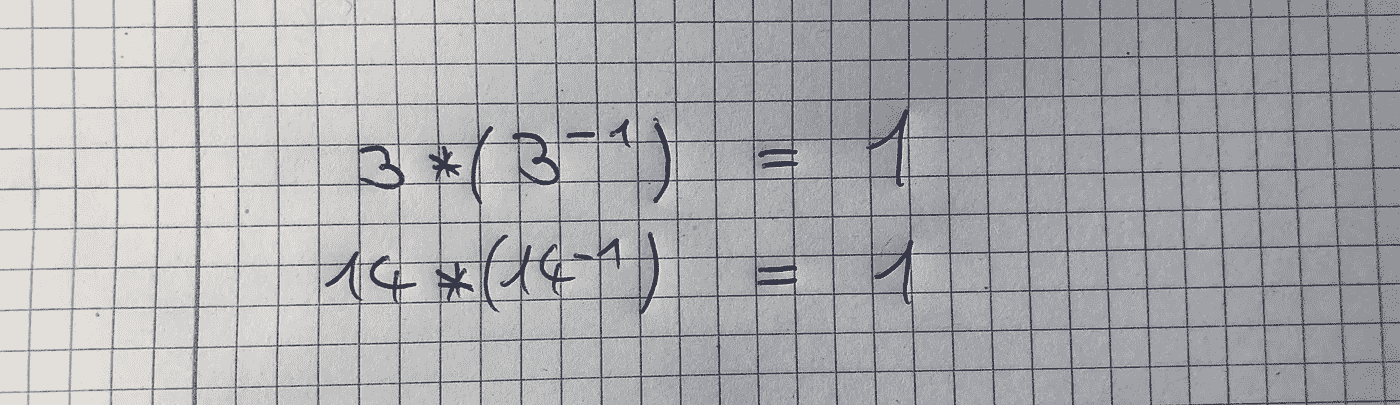 3 * ( 3⁻¹ ) = 1
14 * ( 14⁻¹ ) = 1